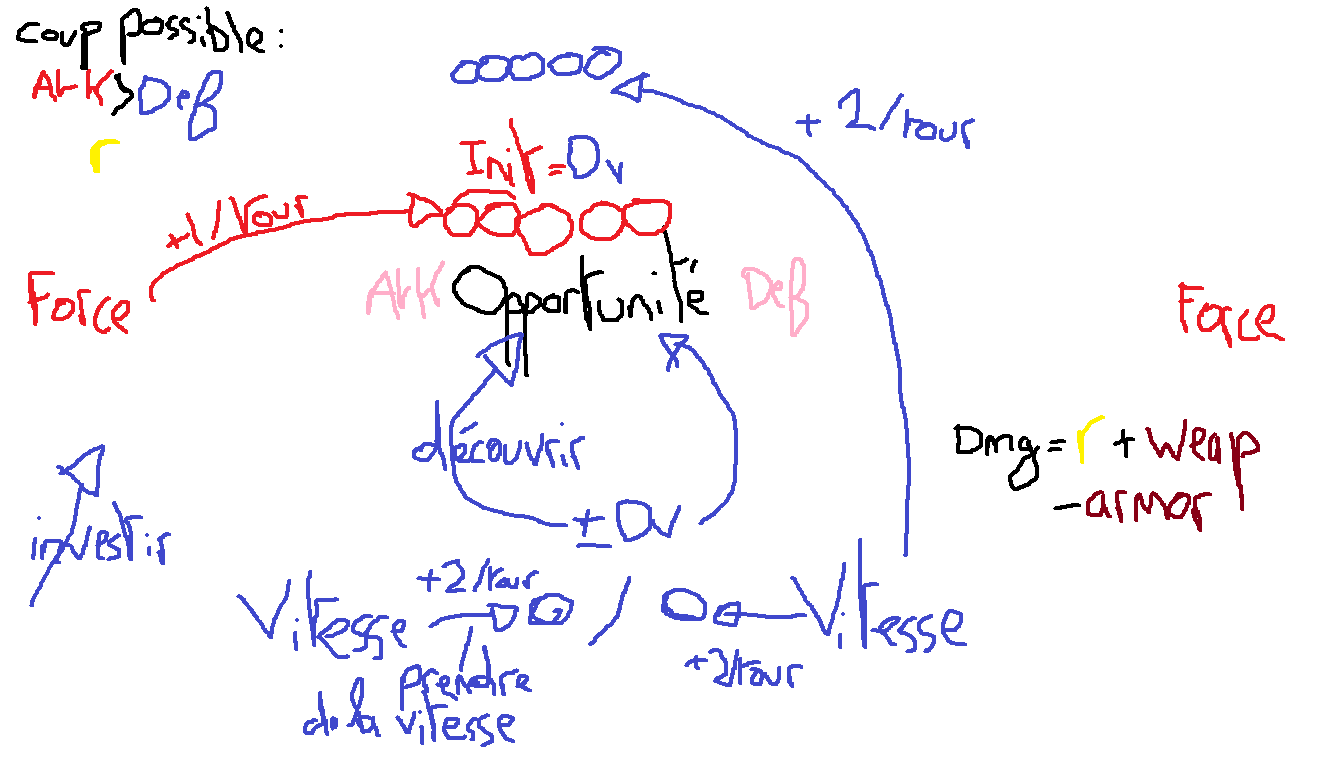 coup possible:
Atk > Def
r
+1/tour
Init = Dv
+ 1/tour
Force
Atk
Opportunité
Def
Force
découvrir
Dmg = r + weap
- armor
investir
± Dv
+2/tour
Vitesse
/
Vitesse
+2/tour
prendre
de la vitesse